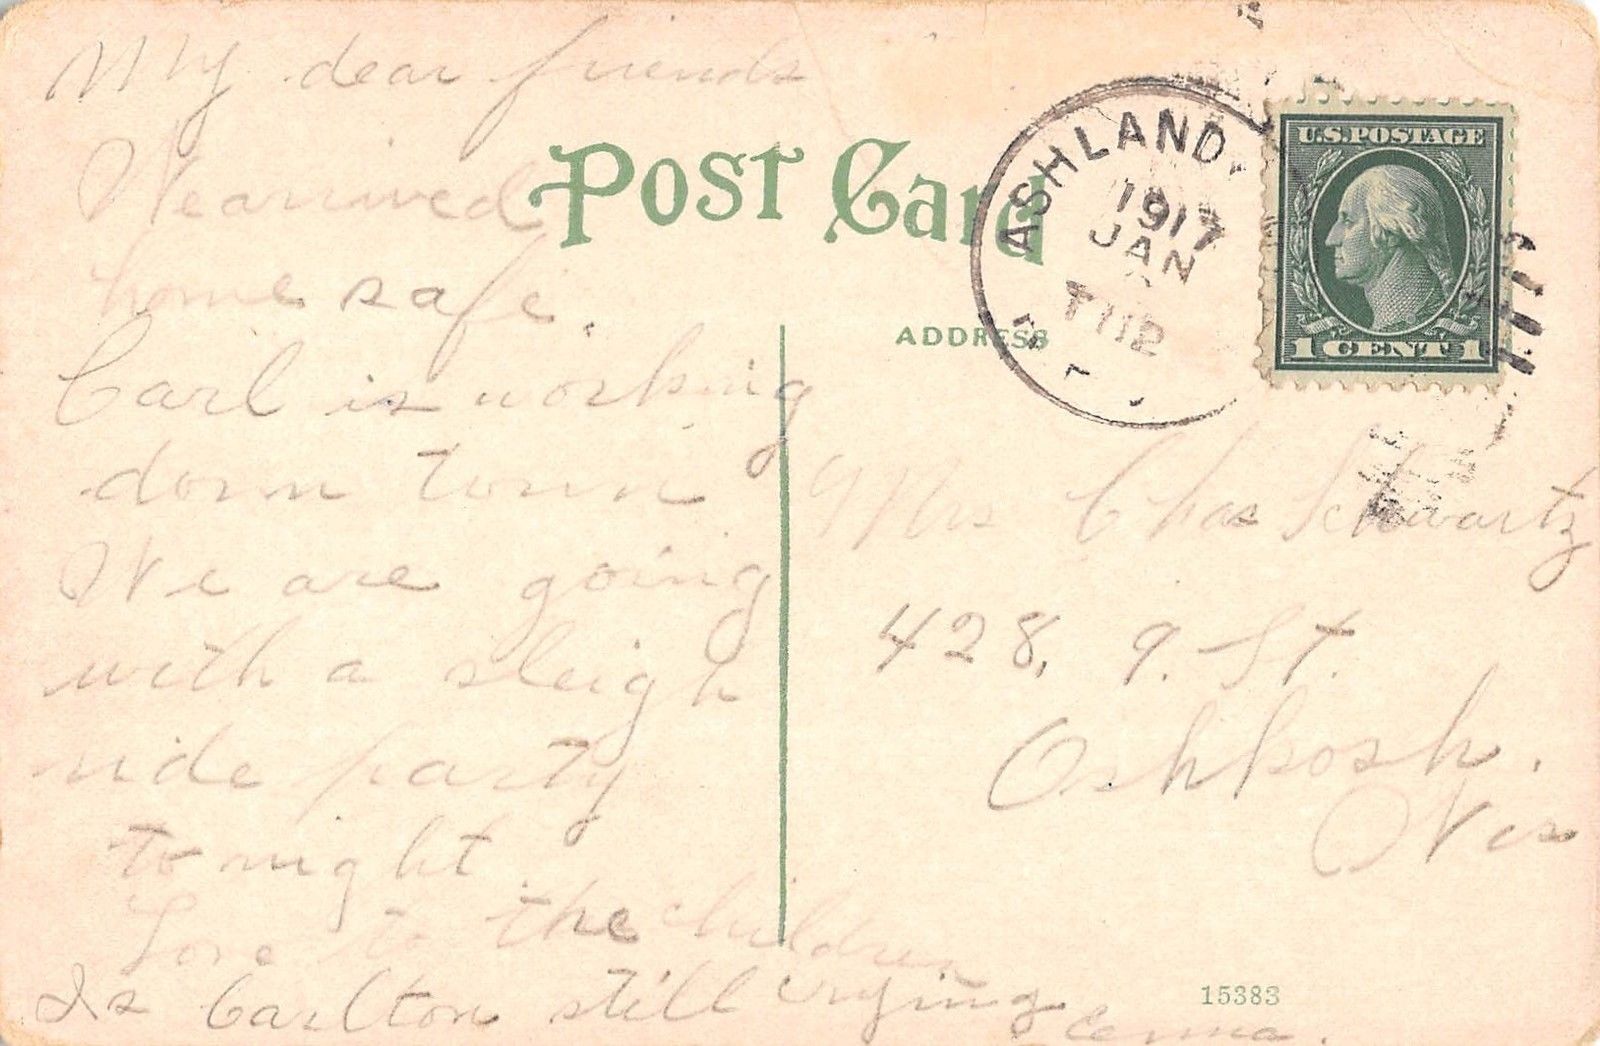 My dear friends
We arrived
home safe.
Carl is working
down town
We are going
with a sleigh
ride party
to night
Love to the children
Is Carlton still crying
Post Card
ADDRESS
ASHLAND
1917
JAN
U.S. POSTAGE
1 CENT 1
Mrs Chas Schwartz
428, 9. St.
Oshkosh.
Wis
15383